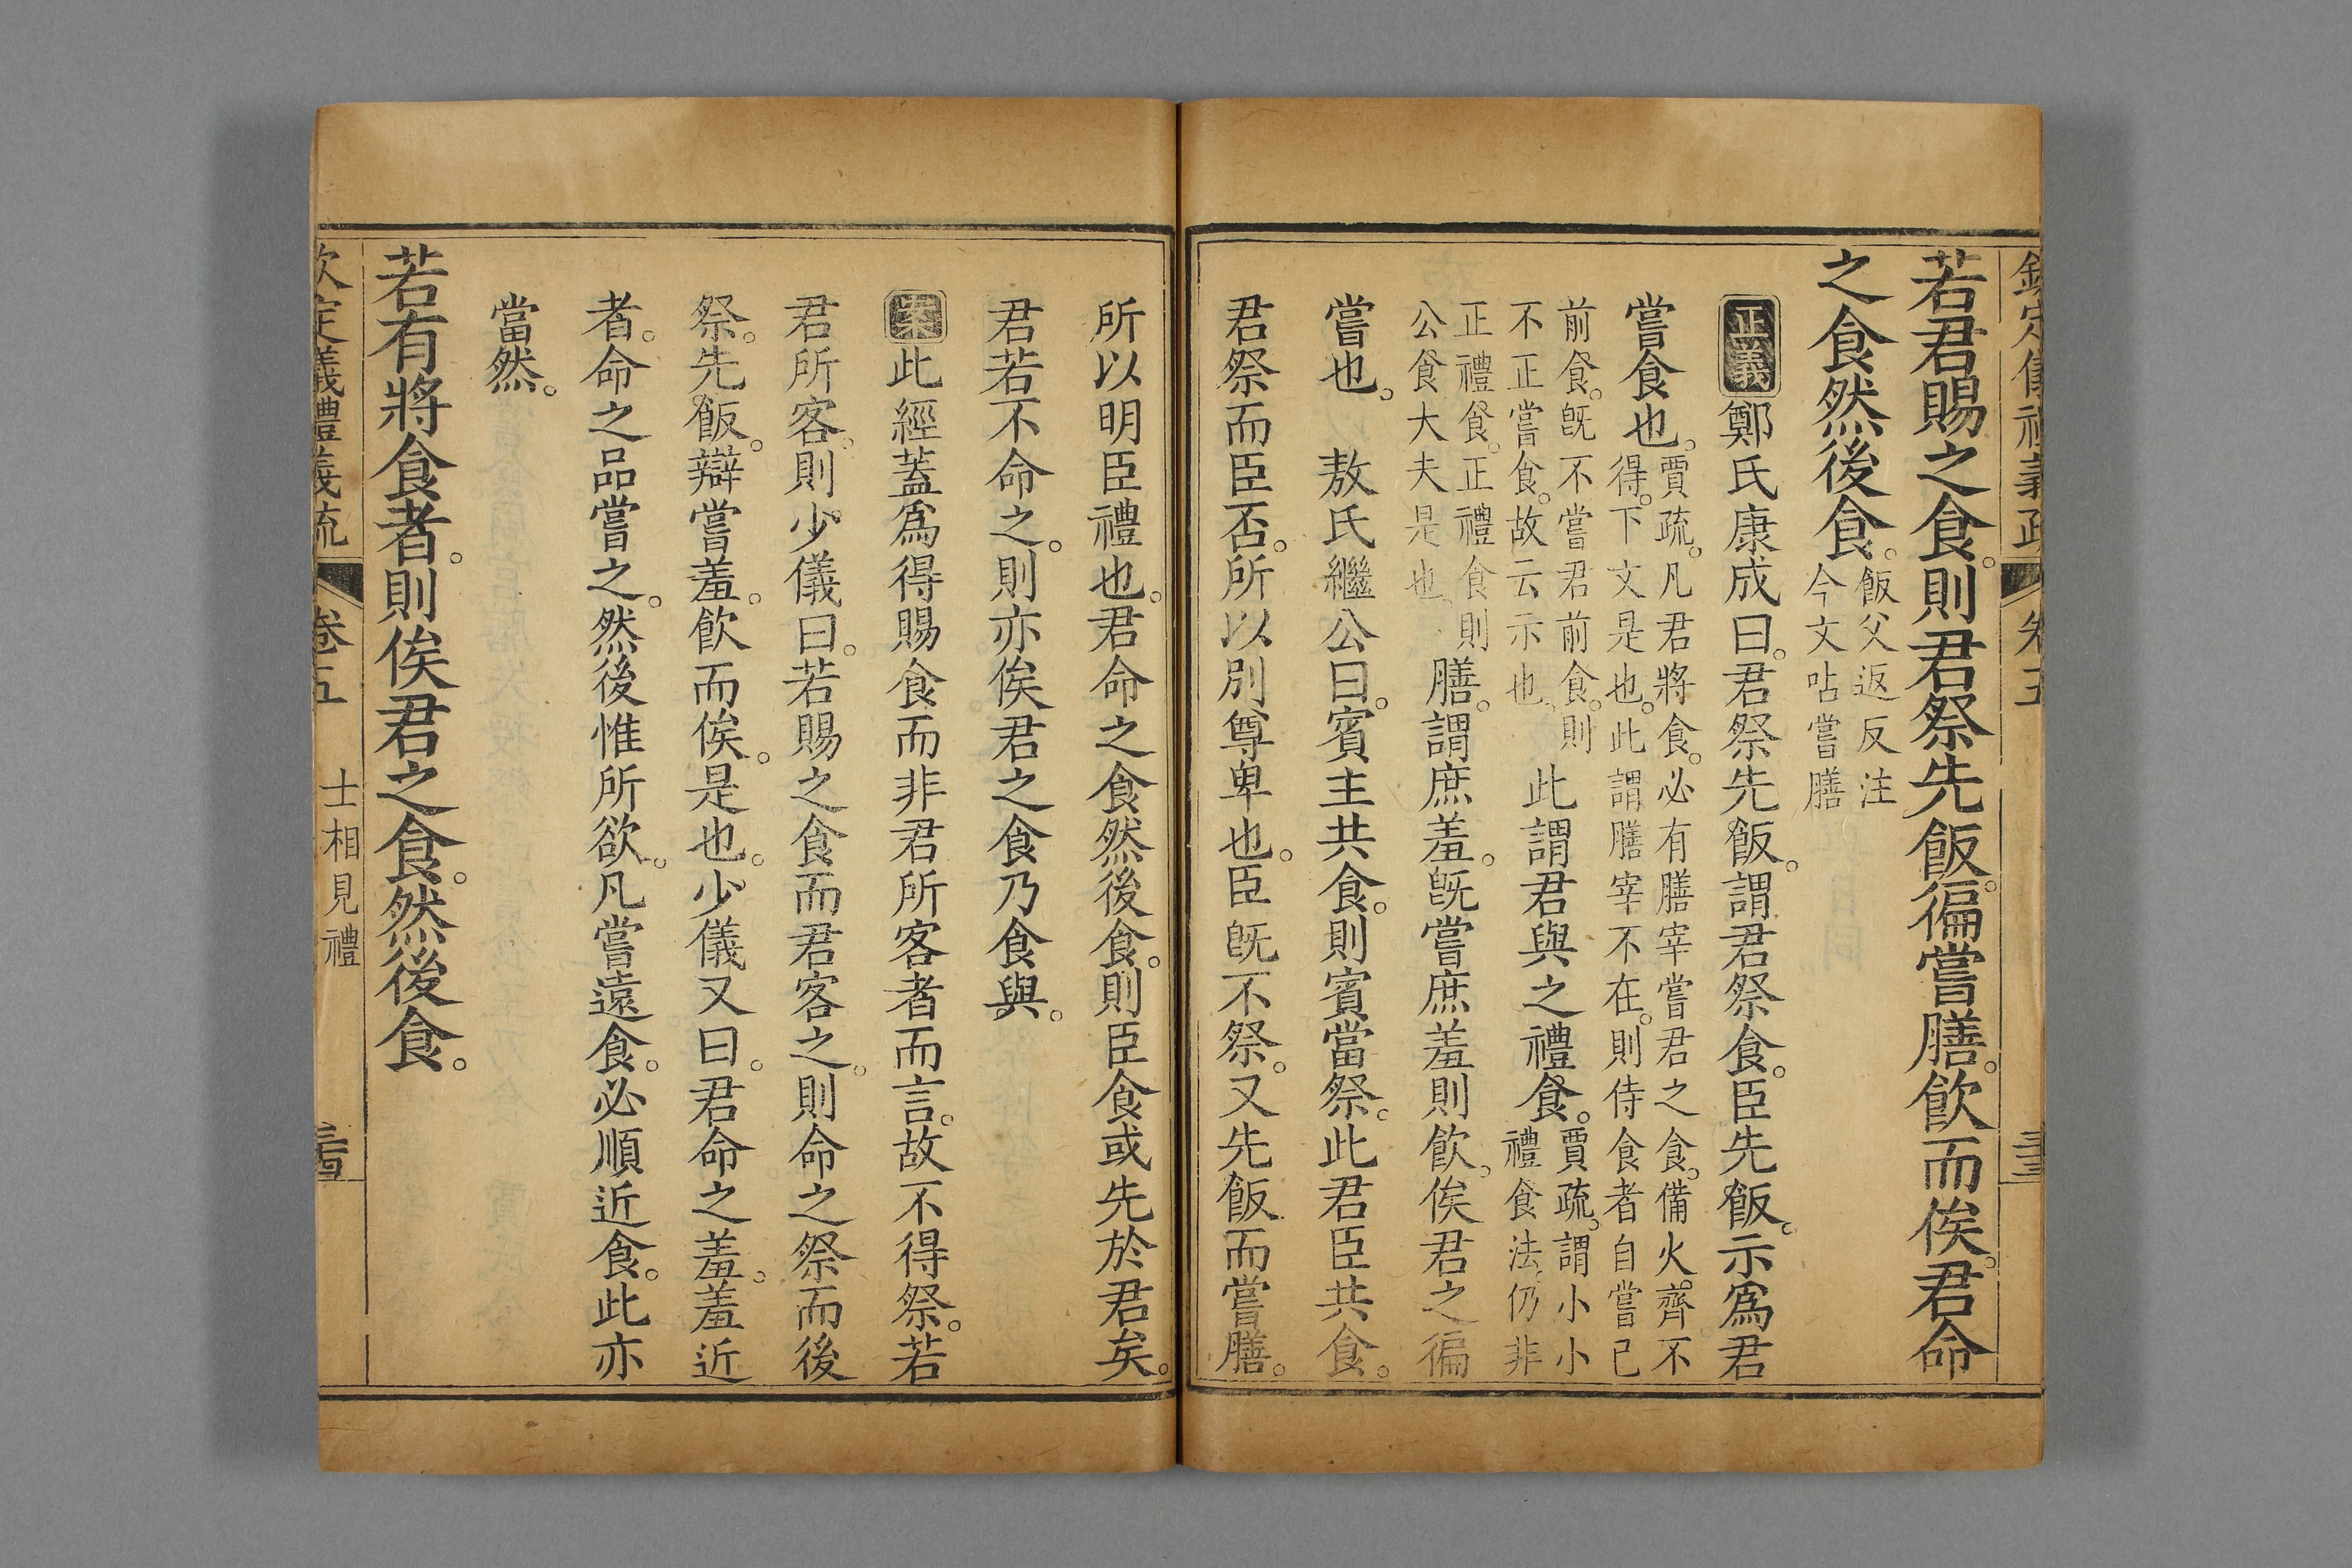 欽定儀禮義疏 卷五
若君賜之食。則君祭先飯。徧嘗膳。飮而俟。君命
之食然後食。
飯父返反注
今文呫嘗膳
正義 鄭氏康成曰。君祭先飯。謂君祭食。臣先飯。示爲君
嘗食也。
賈疏。凡君將食。必有膳宰嘗君之食。備火齊不
得。下文是也。此謂膳宰不在。則侍食者自嘗己
前食。旣不嘗君前食。則
不正嘗食。故云示也。
此謂君與之禮食。
賈疏。謂小小
禮食法。仍非
正禮食。正禮食則
公食大夫是也。
膳。謂庶羞。旣嘗庶羞則飮。俟君之徧
嘗也。 敖氏繼公曰。賓主共食。則賓當祭。此君臣共食。
君祭而臣否。所以別尊卑也。臣旣不祭。又先飯而嘗膳。
所以明臣禮也。君命之食然後食。則臣食或先於君矣。
君若不命之。則亦俟君之食乃食與。
案 此經蓋爲得賜食而非君所客者而言。故不得祭。若
君所客。則少儀曰。若賜之食而君客之。則命之祭而後
祭。先飯。辯嘗羞。飮而俟。是也。少儀又曰。君命之羞。羞近
者。命之品嘗之。然後惟所欲。凡嘗遠食。必順近食。此亦
當然。
若有將食者。則俟君之食。然後食。
欽定儀禮義疏 卷五 士相見禮